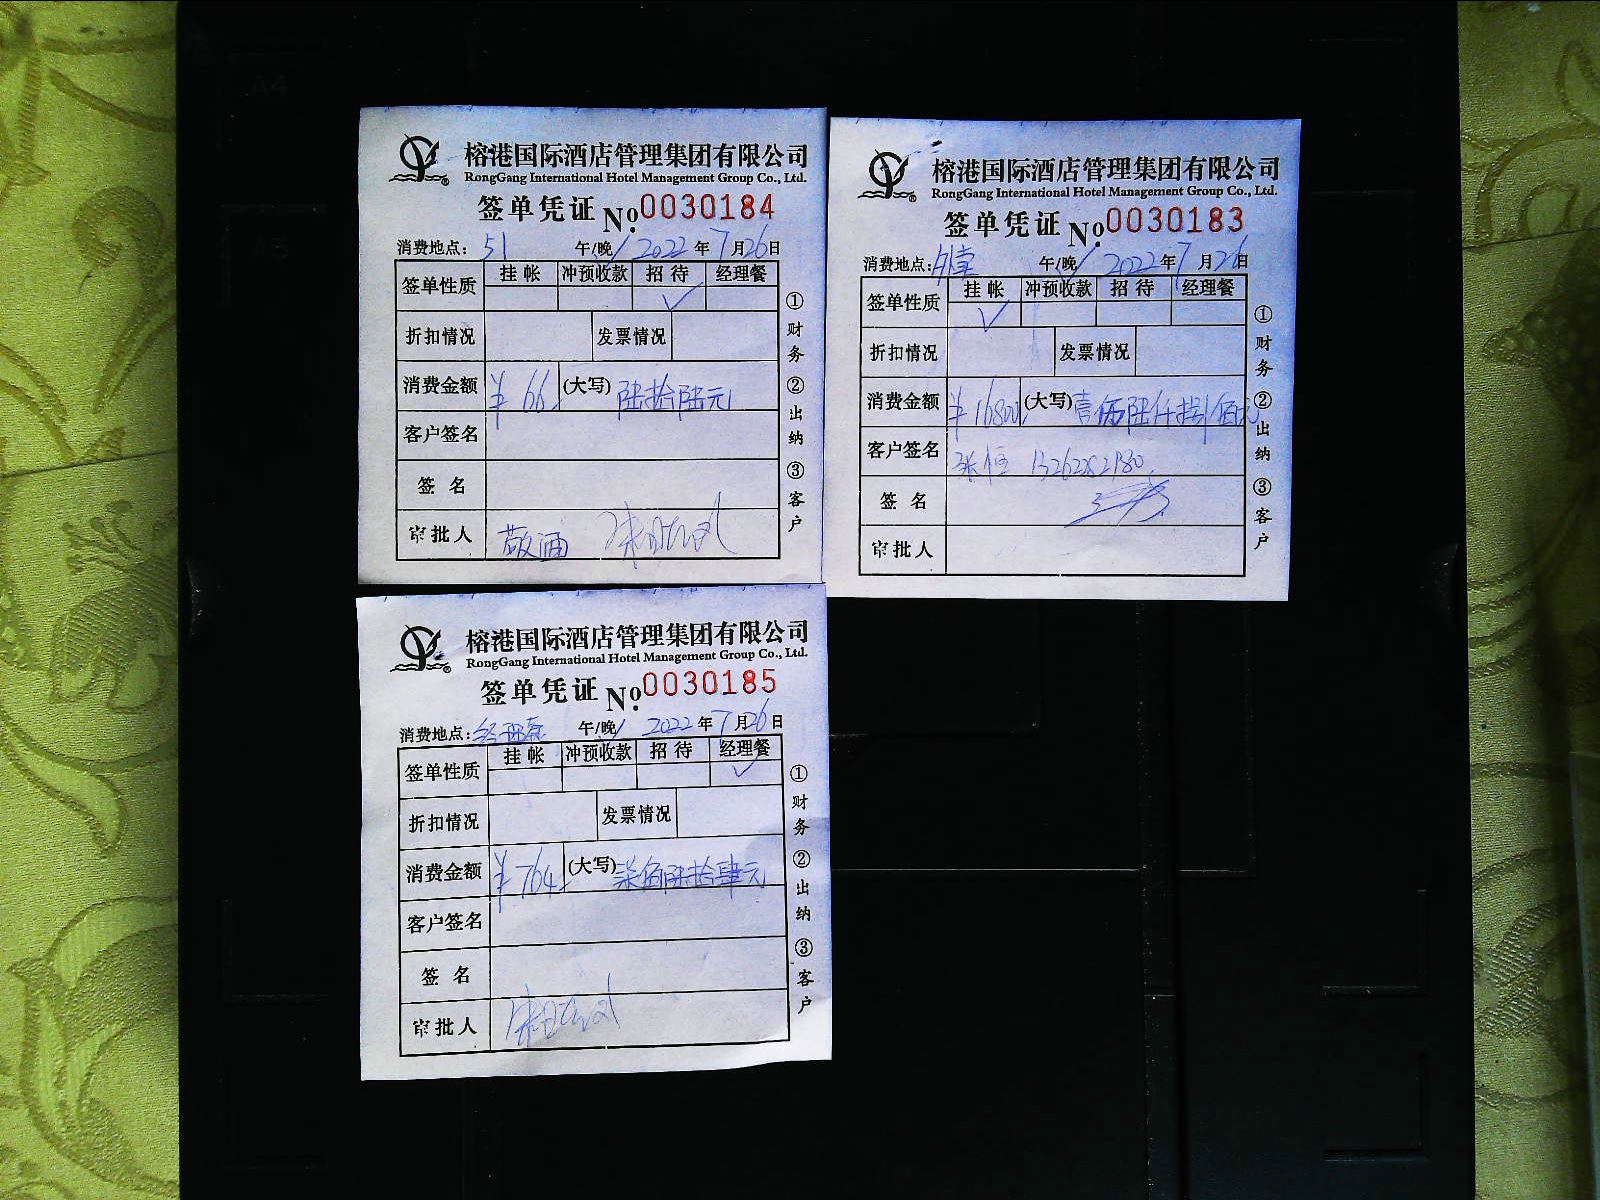 榕港国际酒店管理集团有限公司
RongGang International Hotel Management Group Co., Ltd.
签单凭证 No.0030184
消费地点: 51 午/晚 2022年7月26日
签单性质 挂帐 冲预收款 招待 经理餐
✓
折扣情况 发票情况
消费金额 ¥66 (大写) 陆拾陆元
客户签名
签名
审批人 敬酒
①财务 ②出纳 ③客户
榕港国际酒店管理集团有限公司
RongGang International Hotel Management Group Co., Ltd.
签单凭证 No.0030183
消费地点: 午/晚 2022年7月26日
签单性质 挂帐 冲预收款 招待 经理餐
✓
折扣情况 发票情况
消费金额 ¥16800 (大写) 壹万陆仟捌佰元
客户签名 张恒
签名
审批人
①财务 ②出纳 ③客户
榕港国际酒店管理集团有限公司
RongGang International Hotel Management Group Co., Ltd.
签单凭证 No.0030185
消费地点: 经理餐 午/晚 2022年7月26日
签单性质 挂帐 冲预收款 招待 经理餐
✓
折扣情况 发票情况
消费金额 ¥764 (大写) 柒佰陆拾肆元
客户签名
签名
审批人
①财务 ②出纳 ③客户
A4
A5